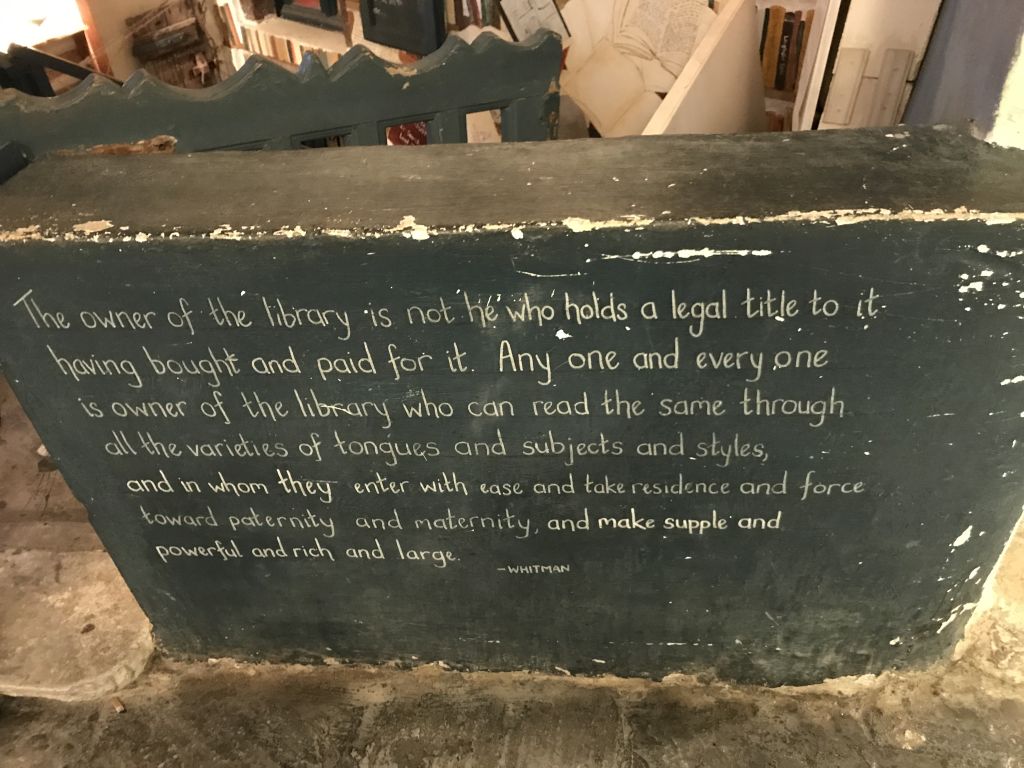 The owner of the library is not he who holds a legal title to it
having bought and paid for it. Any one and every one
is owner of the library who can read the same through
all the varieties of tongues and subjects and styles,
and in whom they enter with ease and take residence and force
toward paternity and maternity, and make supple and
powerful and rich and large.
-WHITMAN